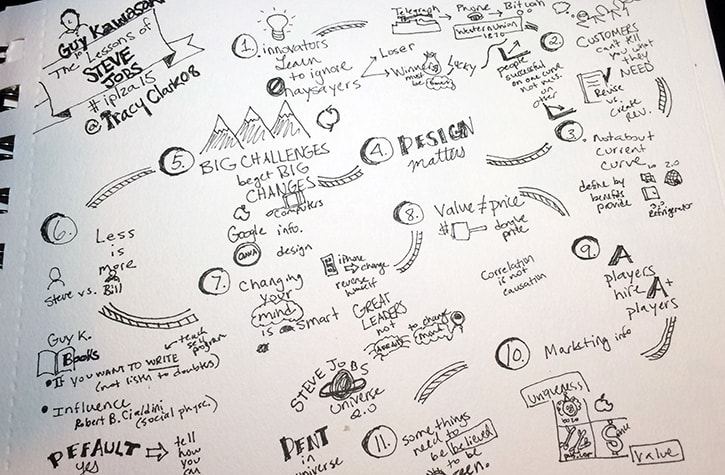 Guy Kawasaki
The Lessons of
STEVE
JOBS
#iplza15
@TracyClark08
1.
innovators
Learn
to ignore
naysayers
Loser
Winner
must be
Lucky
Telegraph
Phone
Bitcoin
Western Union
1870
people
successful
on one curve
not nec.
on
other
2.
CUSTOMERS
can't tell
you what
they
NEED
Revise
vs.
Create
REV.
3.
Not about
current
curve
define by
benefits
provide
1.0
2.0
Refrigerator
4.
DESIGN
matters
5.
BIG CHALLENGES
beget BIG
CHANGES
computers
Google info.
design
6.
Less
is
more
Steve vs. Bill
7.
Changing
your
mind
is smart
iPhone
change
reverse
himself
GREAT
LEADERS
not
to change
mind
8.
Value ≠ price
Correlation
is not
causation
9.
A
players
hire A+
players
10.
Marketing info
UNIQUENESS
VALUE
Guy K.
Books
teach
self
program
• IF YOU WANT TO WRITE
(not listen to doubters)
• Influence
Robert B. Cialdini
DEFAULT
yes
tell
how
you
STEVE JOBS
Universe
2.0
DENT
in
universe
11.
some things
need to
be believed
to be
seen.